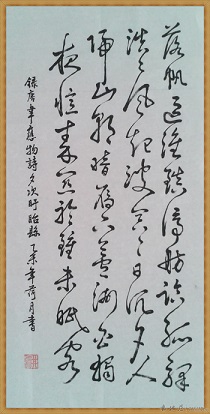 落帆逗淮鎮停舫臨孤驛
浩々風起波冥々日沉夕人
歸山郭暗雁下蘆洲白獨
夜憶秦關聽鐘未眠客
錄唐韋應物詩夕次盱眙縣乙未年荷月書